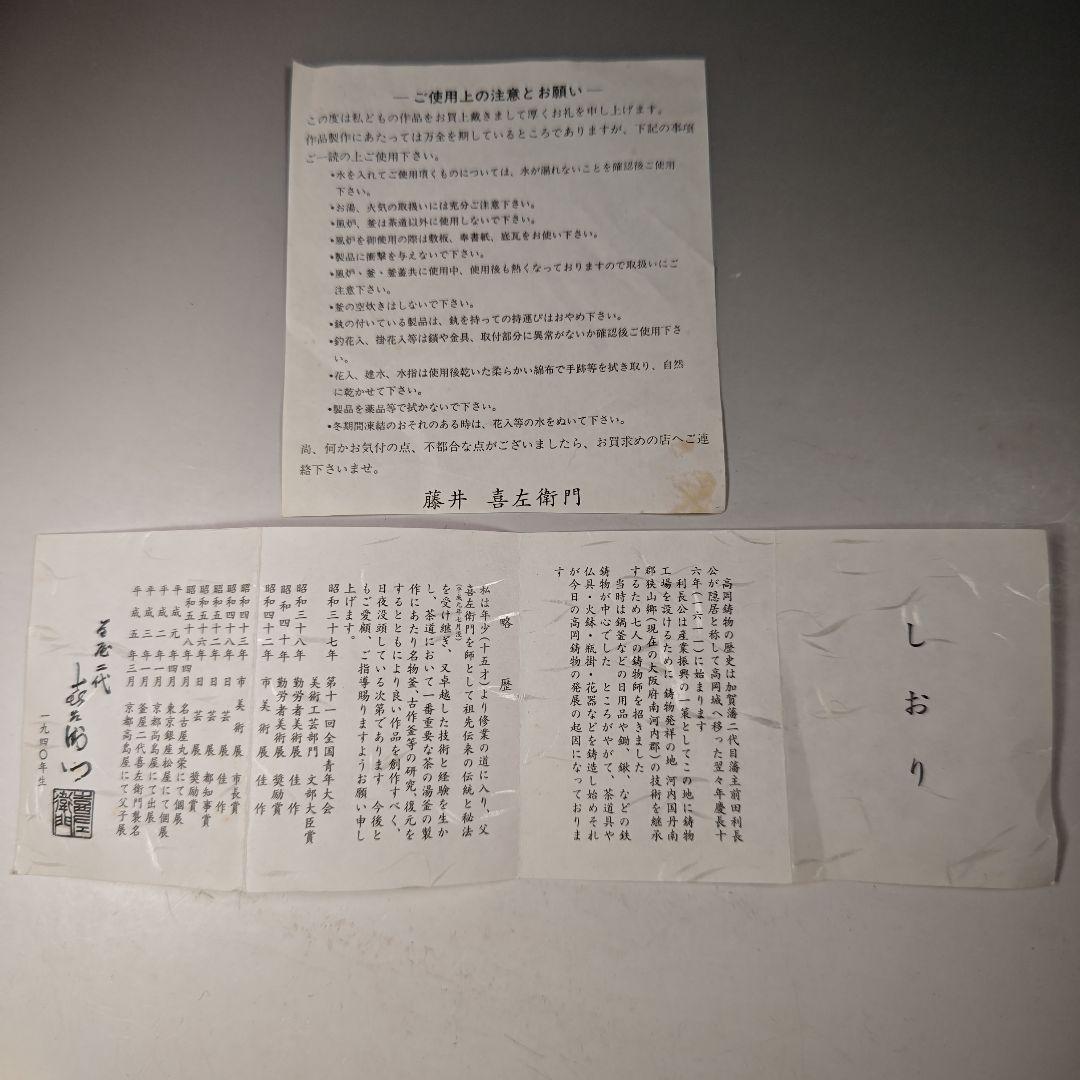 ― ご使用上の注意とお願い ―
この度は私どもの作品をお買上戴きまして厚くお礼を申し上げます。
作品製作にあたっては万全を期しているところでありますが、下記の事項
ご一読の上ご使用下さい。
•水を入れてご使用頂くものについては、水が漏れないことを確認後ご使用
下さい。
•お湯、火気の取扱いには充分ご注意下さい。
•風炉、釜は茶道以外に使用しないで下さい。
•風炉を御使用の際は敷板、奉書紙、底瓦をお使い下さい。
•製品に衝撃を与えないで下さい。
•風炉・釜・釜蓋共に使用中、使用後も熱くなっておりますので取扱いにご
注意下さい。
•釜の空炊きはしないで下さい。
•釻の付いている製品は、釻を持っての持運びはおやめ下さい。
•釣花入、掛花入等は鎖や金具、取付部分に異常がないか確認後ご使用下さ
い。
•花入、建水、水指は使用後乾いた柔らかい綿布で手跡等を拭き取り、自然
に乾かせて下さい。
•製品を薬品等で拭かないで下さい。
•冬期間凍結のおそれのある時は、花入等の水をぬいて下さい。
尚、何かお気付の点、不都合な点がございましたら、お買求めの店へご連
絡下さいませ。
藤井 喜左衛門
しおり
高岡鋳物の歴史は加賀藩二代目藩主前田利長
公が隠居と称して高岡城へ移った翌々年慶長十
六年(一六一一)に始まります
利長公は産業振興の一策としてこの地に鋳物
工場を設けるために 鋳物発祥の地 河内国丹南
郡狭山郷(現在の大阪府南河内郡)の技術を継承
するため七人の鋳物師を招きました
当時は鍋釜などの日用品や鋤、鍬、などの鉄
鋳物が中心でした ところがやがて、茶道具や
仏具・火鉢・瓶掛・花器などを鋳造し始めそれ
が今日の高岡鋳物の発展の起因になっておりま
す
略歴
私は年少(十五才)より修業の道に入り、父
喜左衛門(平成元年七月没)を師として祖先伝来の伝統と秘法
を受け継ぎ、又卓越した技術と経験を生か
し、茶道において一番重要な茶の湯釜の製
作にあたり名物釜、古作釜等の研究、復元を
するとともにより良い作品を創作すべく、
日夜没頭している次第であります 今後と
もご愛顧、ご指導賜りますようお願い申し
上げます。
昭和三十七年 第十一回全国青年大会
美術工芸部門 文部大臣賞
昭和三十八年 勤労者美術展 佳作
昭和四十年 勤労者美術展 奨励賞
昭和四十二年 市美術展 佳作
昭和四十三年 市美術展 市長賞
昭和四十八年 日芸展 佳作
昭和五十二年 日芸展 都知事賞
昭和五十六年 日芸展 奨励賞
昭和五十八年四月 名古屋丸栄にて個展
平成元年四月 東京銀座松屋にて個展
平成二年一月 京都高島屋にて出展
平成三年一月 釜屋二代喜左衛門襲名
平成五年三月 京都高島屋にて父子展
二代
一九四〇年生
喜左
衛門